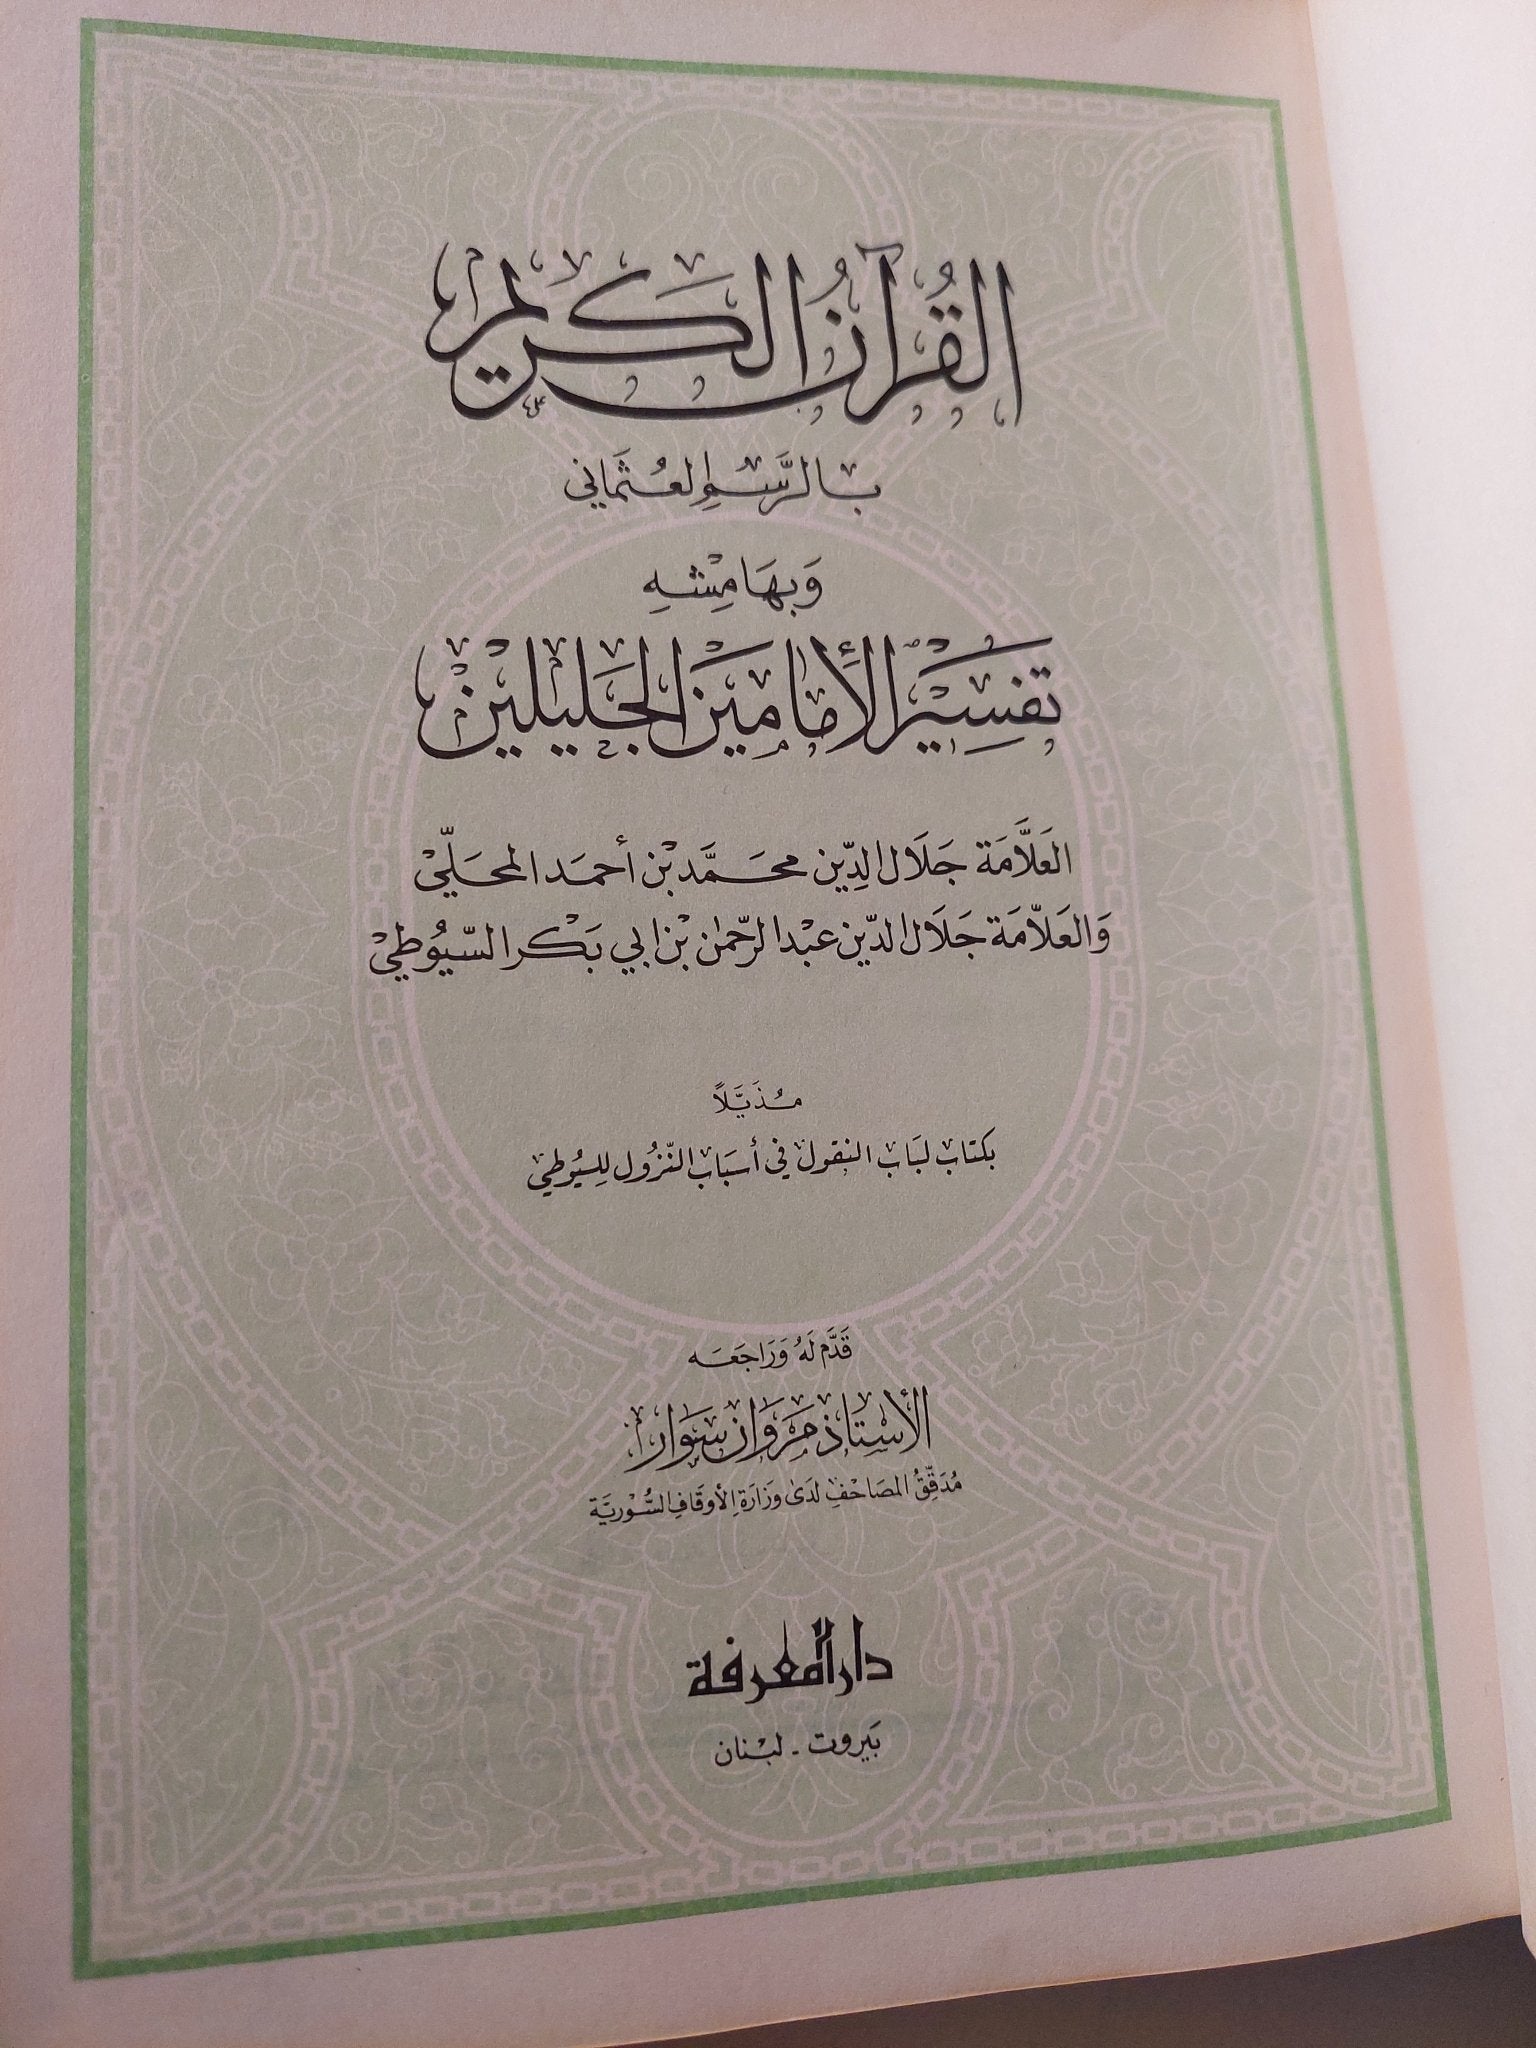 القُرآنُ الكَريم
بالرَّسْمِ العُثمَاني
وَبهَامِشِهِ
تفسِيْر الإمَامَيْن الجَليلَين
العَلاَّمَة جَلَال الدِّين محمَّد بْن أحمَد المحَليّ
وَالعَلاّمَة جَلَال الدّين عبْد الرّحمٰن بْن ابي بَكْر السّيُوطيْ
مُذَيَّلاً
بكتاب لبَاب النقول في أسبَاب النّزُول للسيُوطي
قَدَّم لَهُ وَرَاجَعَه
الأسْتَاذ مَروَان سَوار
مُدَقِّقُ المصَاحْفِ لدَىٰ وزَارَةِ الأوقَافِ السُّوريَّة
دار المعرفة
بَيروت - لبْنان